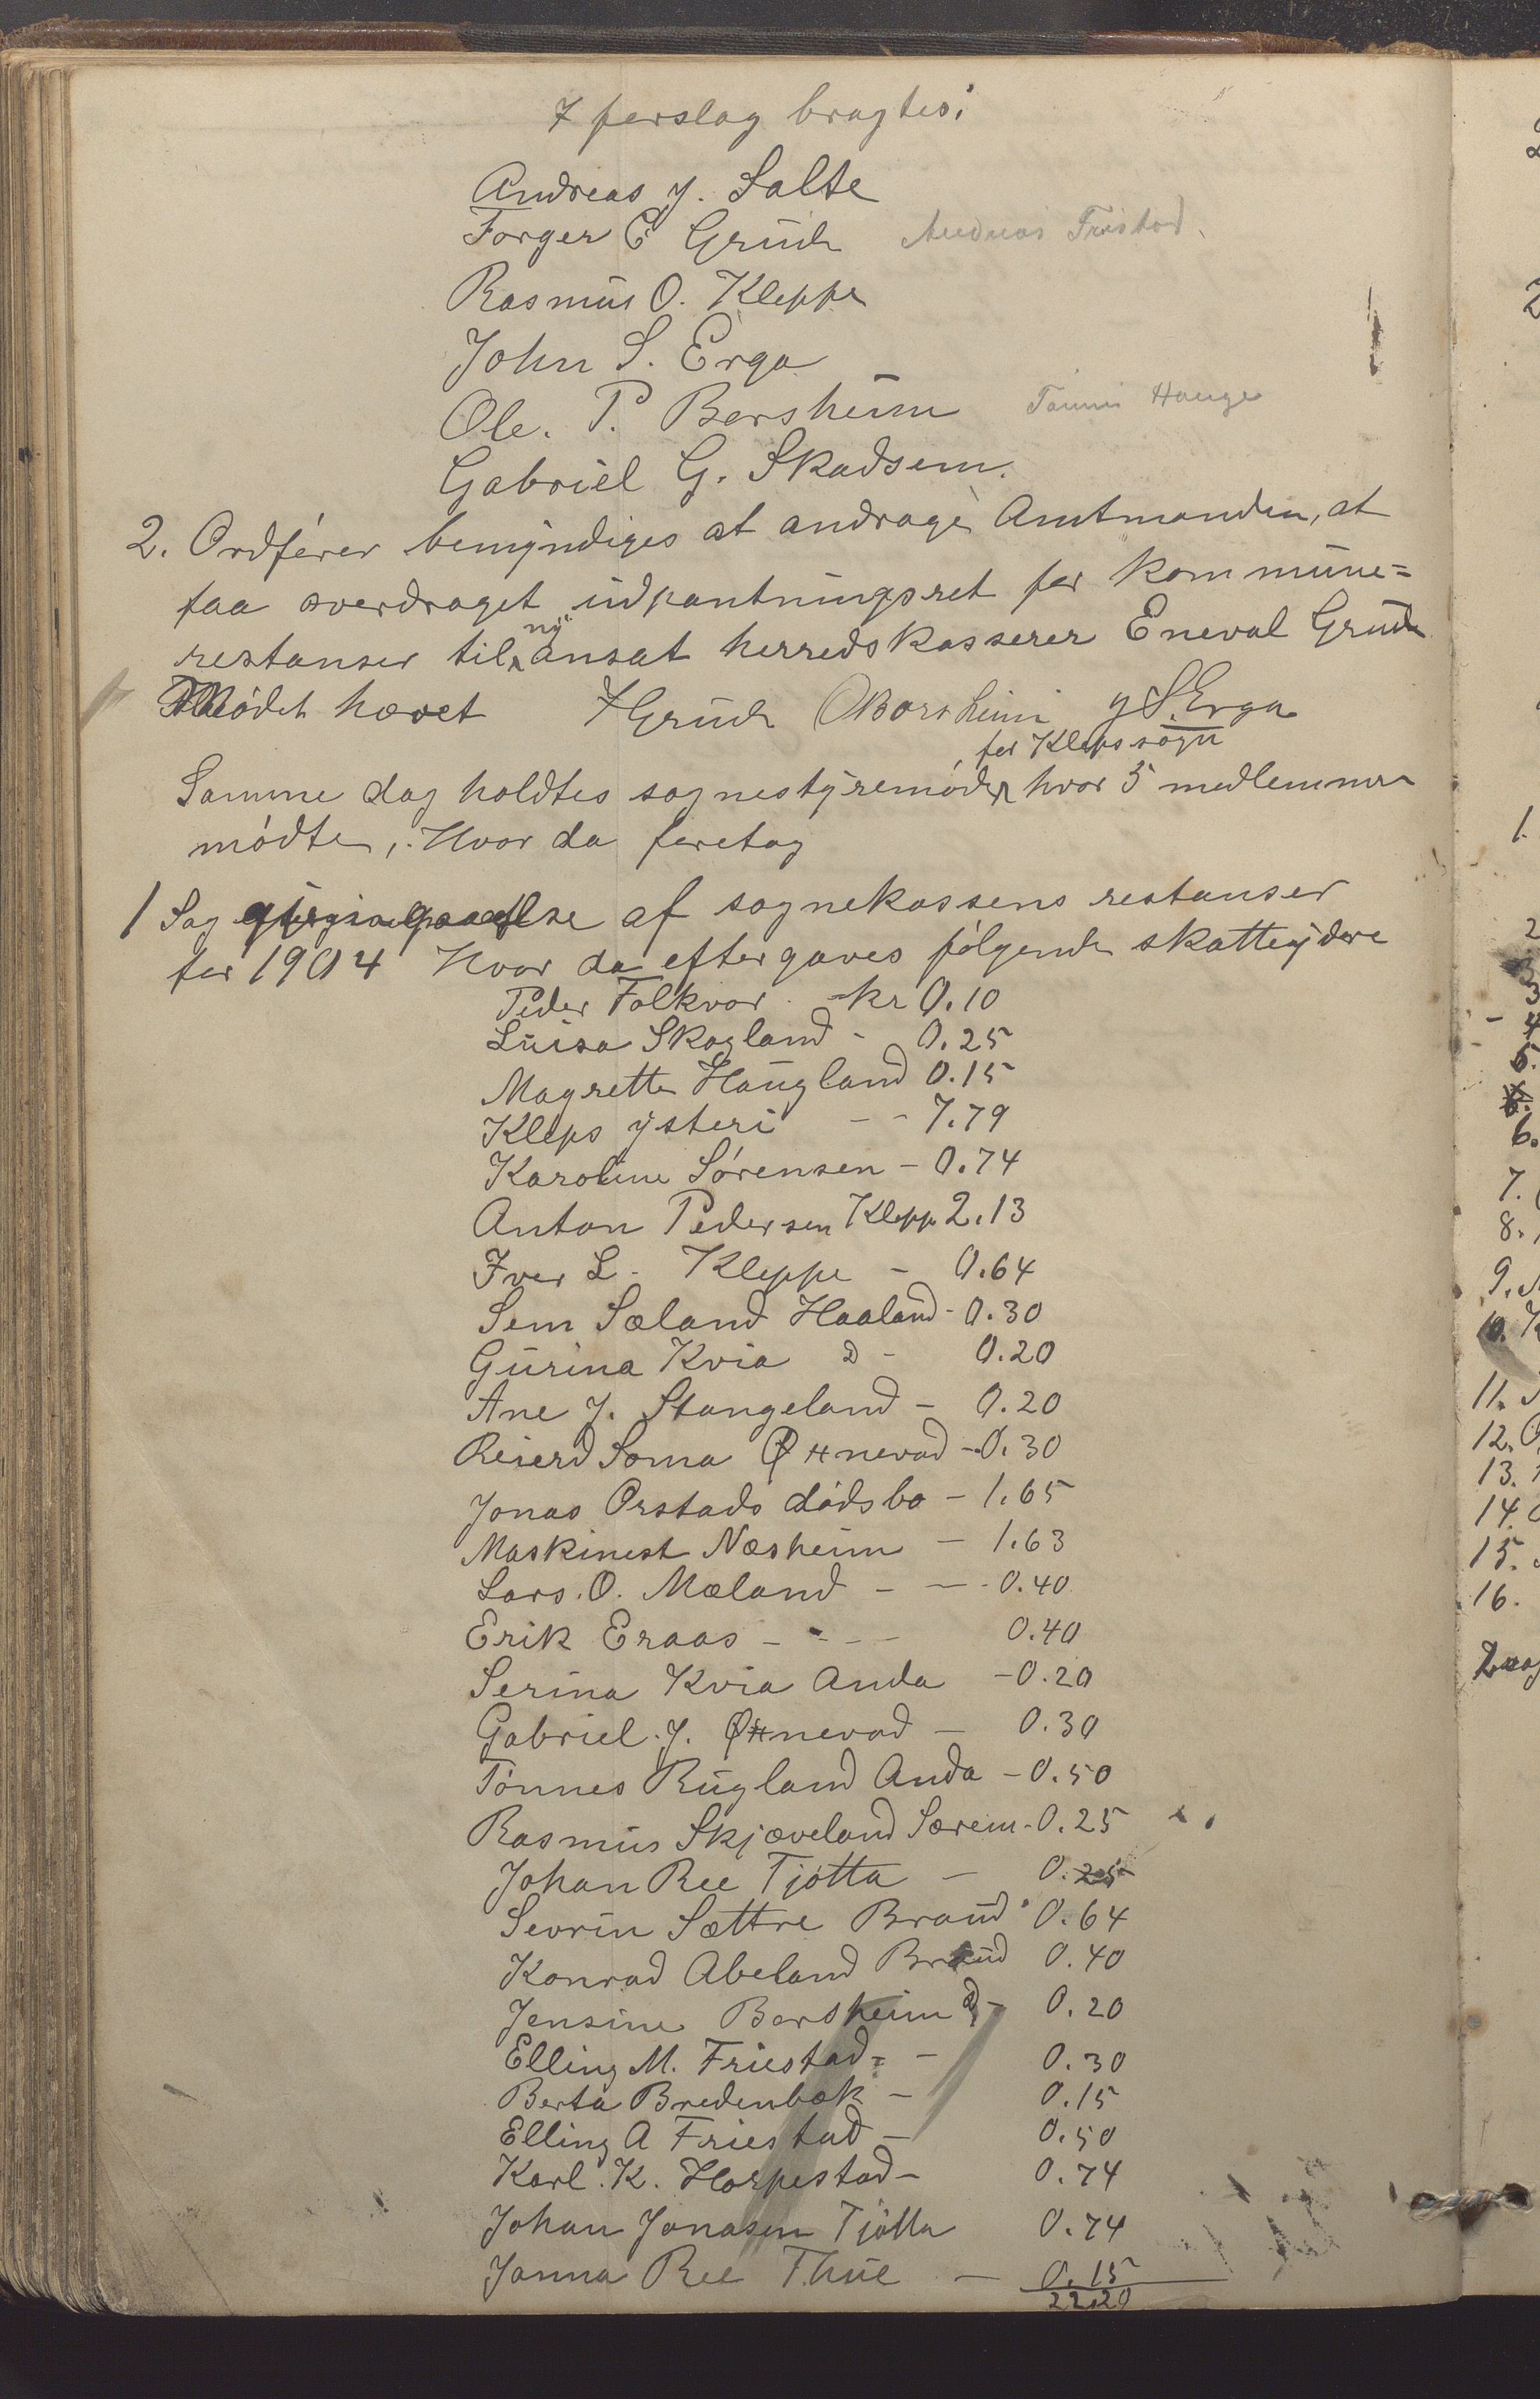 I forslag bragtes:
Andreas J. Salte
Torger E Grude Andreas Friestad.
Rasmus O. Kleppe
John S. Erga
Ole. P. Borsheim Tønnes Hauge
Gabriel G. Skadsem.
2. Ordfører bemyndiges at andrage Amtmanden, at
faa overdraget udpantningsret for kommune=
restanser til ny ansat herredskasserer Eneval Grude
Mødet hævet TGrude OBorsheim JS.Erga
for Kleps sogn
Samme dag holdtes sognestyremøde, hvor 5 medlemmer
mødte, Hvor da foretog
1 Sag af sognekassens restanser
for 1904 Hvor da eftergaves følgende skatteydere
Peder Folkvor - kr 0.10
Luisa Skogland - 0.25
Magrette Haugland 0.15
Kleps ysteri - - 7.79
Karoline Sørensen - 0.74
Anton Pedersen Klepp 2.13
Iver L. Kleppe - 0.64
Sem Sæland Haaland - 0.30
Gurina Kvia D - 0.20
Ane J. Stangeland - 0.20
Reierd Soma Øxnevad - 0.30
Jonas Orstads dødsbo - 1.65
Maskinest Næsheim - 1.63
Lars. O. Mæland - - 0.40
Erik Eraas - - - - 0.40
Serina Kvia Anda - 0.20
Gabriel. J. Øxnevad - 0.30
Tønnes Rugland Anda - 0.50
Rasmus Skjæveland Særem - 0.25
Johan Ree Tjøtta - 0.25
Sevrin Sættre Braud 0.64
Konrad Abeland Braud 0.40
Jensine Borsheim D - 0.20
Elling M. Friestad - - 0.30
Berta Bredenbæk - 0.15
Elling A Friestad - 0.50
Karl. K. Horpestad - 0.74
Johan Jonasen Tjøtta 0.74
Janna Ree Thue - 0.15
22.20